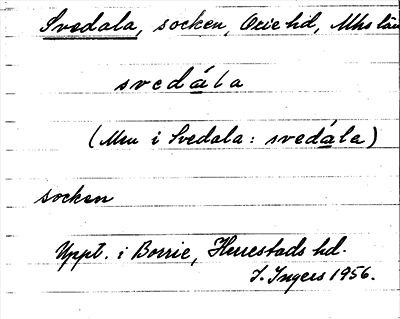 Svedala, socken, Oxie hd, Mhs län
svedála
(Men i Svedala: svedála)
socken
Uppt. i Borrie, Herrestads hd.
I. Ingers 1956.